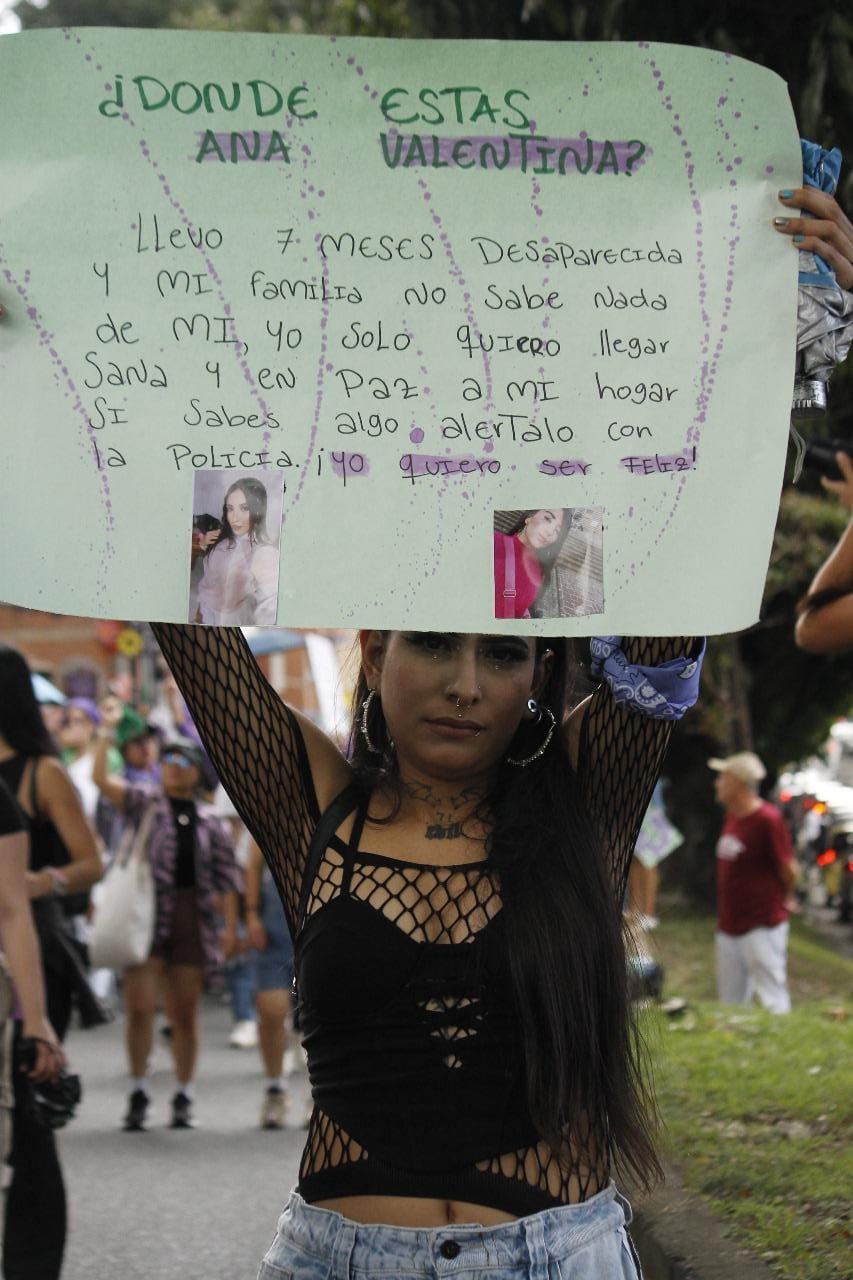 ¿DONDE ESTAS
ANA VALENTINA?
Llevo 7 MESES DESaParecida
Y MI familia NO Sabe Nada
de MI, yo SOLO quiero llegar
Sana y en Paz a MI hogar
SI Sabes algo alerTalo con
la POLICIA. ¡YO quiero ser FELIZ!